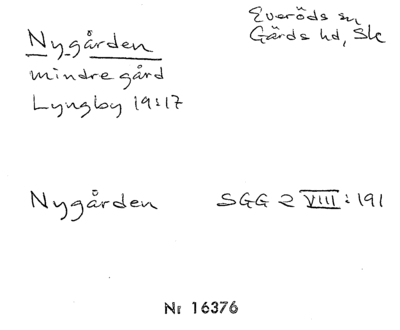 Everöds sn
Nygården
Gärds hd, Sk
mindre gård
Lyngby 19:17
Nygården SGG 2 VIII:191
Nr 16376